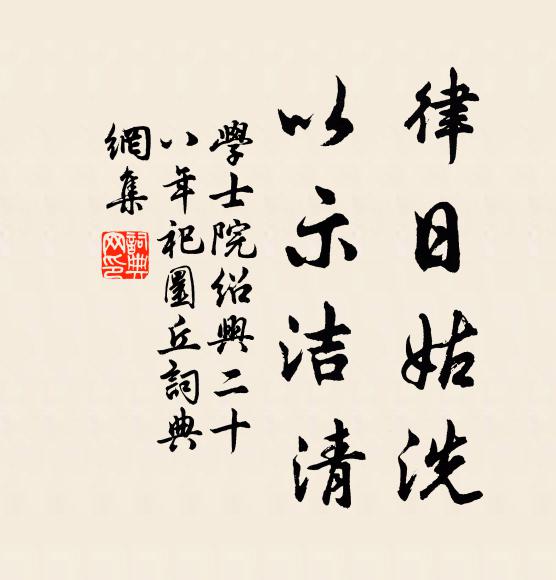 律日姑洗
以示洁清
學士院绍興二十
八年祀圜丘詞典
網集
詞典
网印